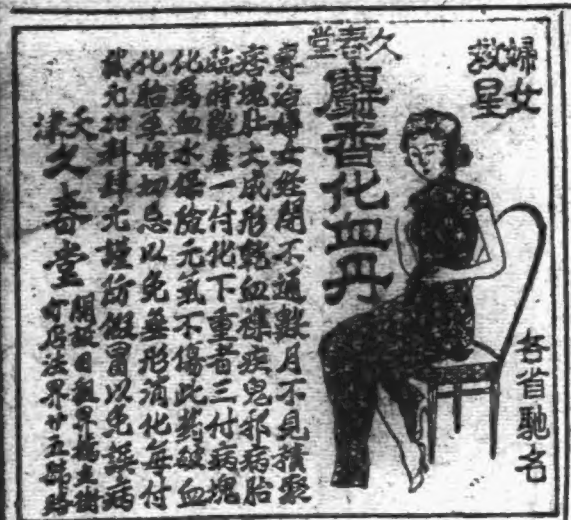 婦女
救星
久春堂
麝香化血丹
各省馳名
專治婦女經閉不通數月不見積聚
痞塊肚大成形乾血癆疾鬼邪病胎
臨時難產一付化下重者三付病塊
化為血水保險元氣不傷此葯破血
化胎孕婦切忌以免無形消化每付
貳元加料肆元謹防假冒以免誤病
天津久春堂
開設日租界橋立街
町后法界廿五號路